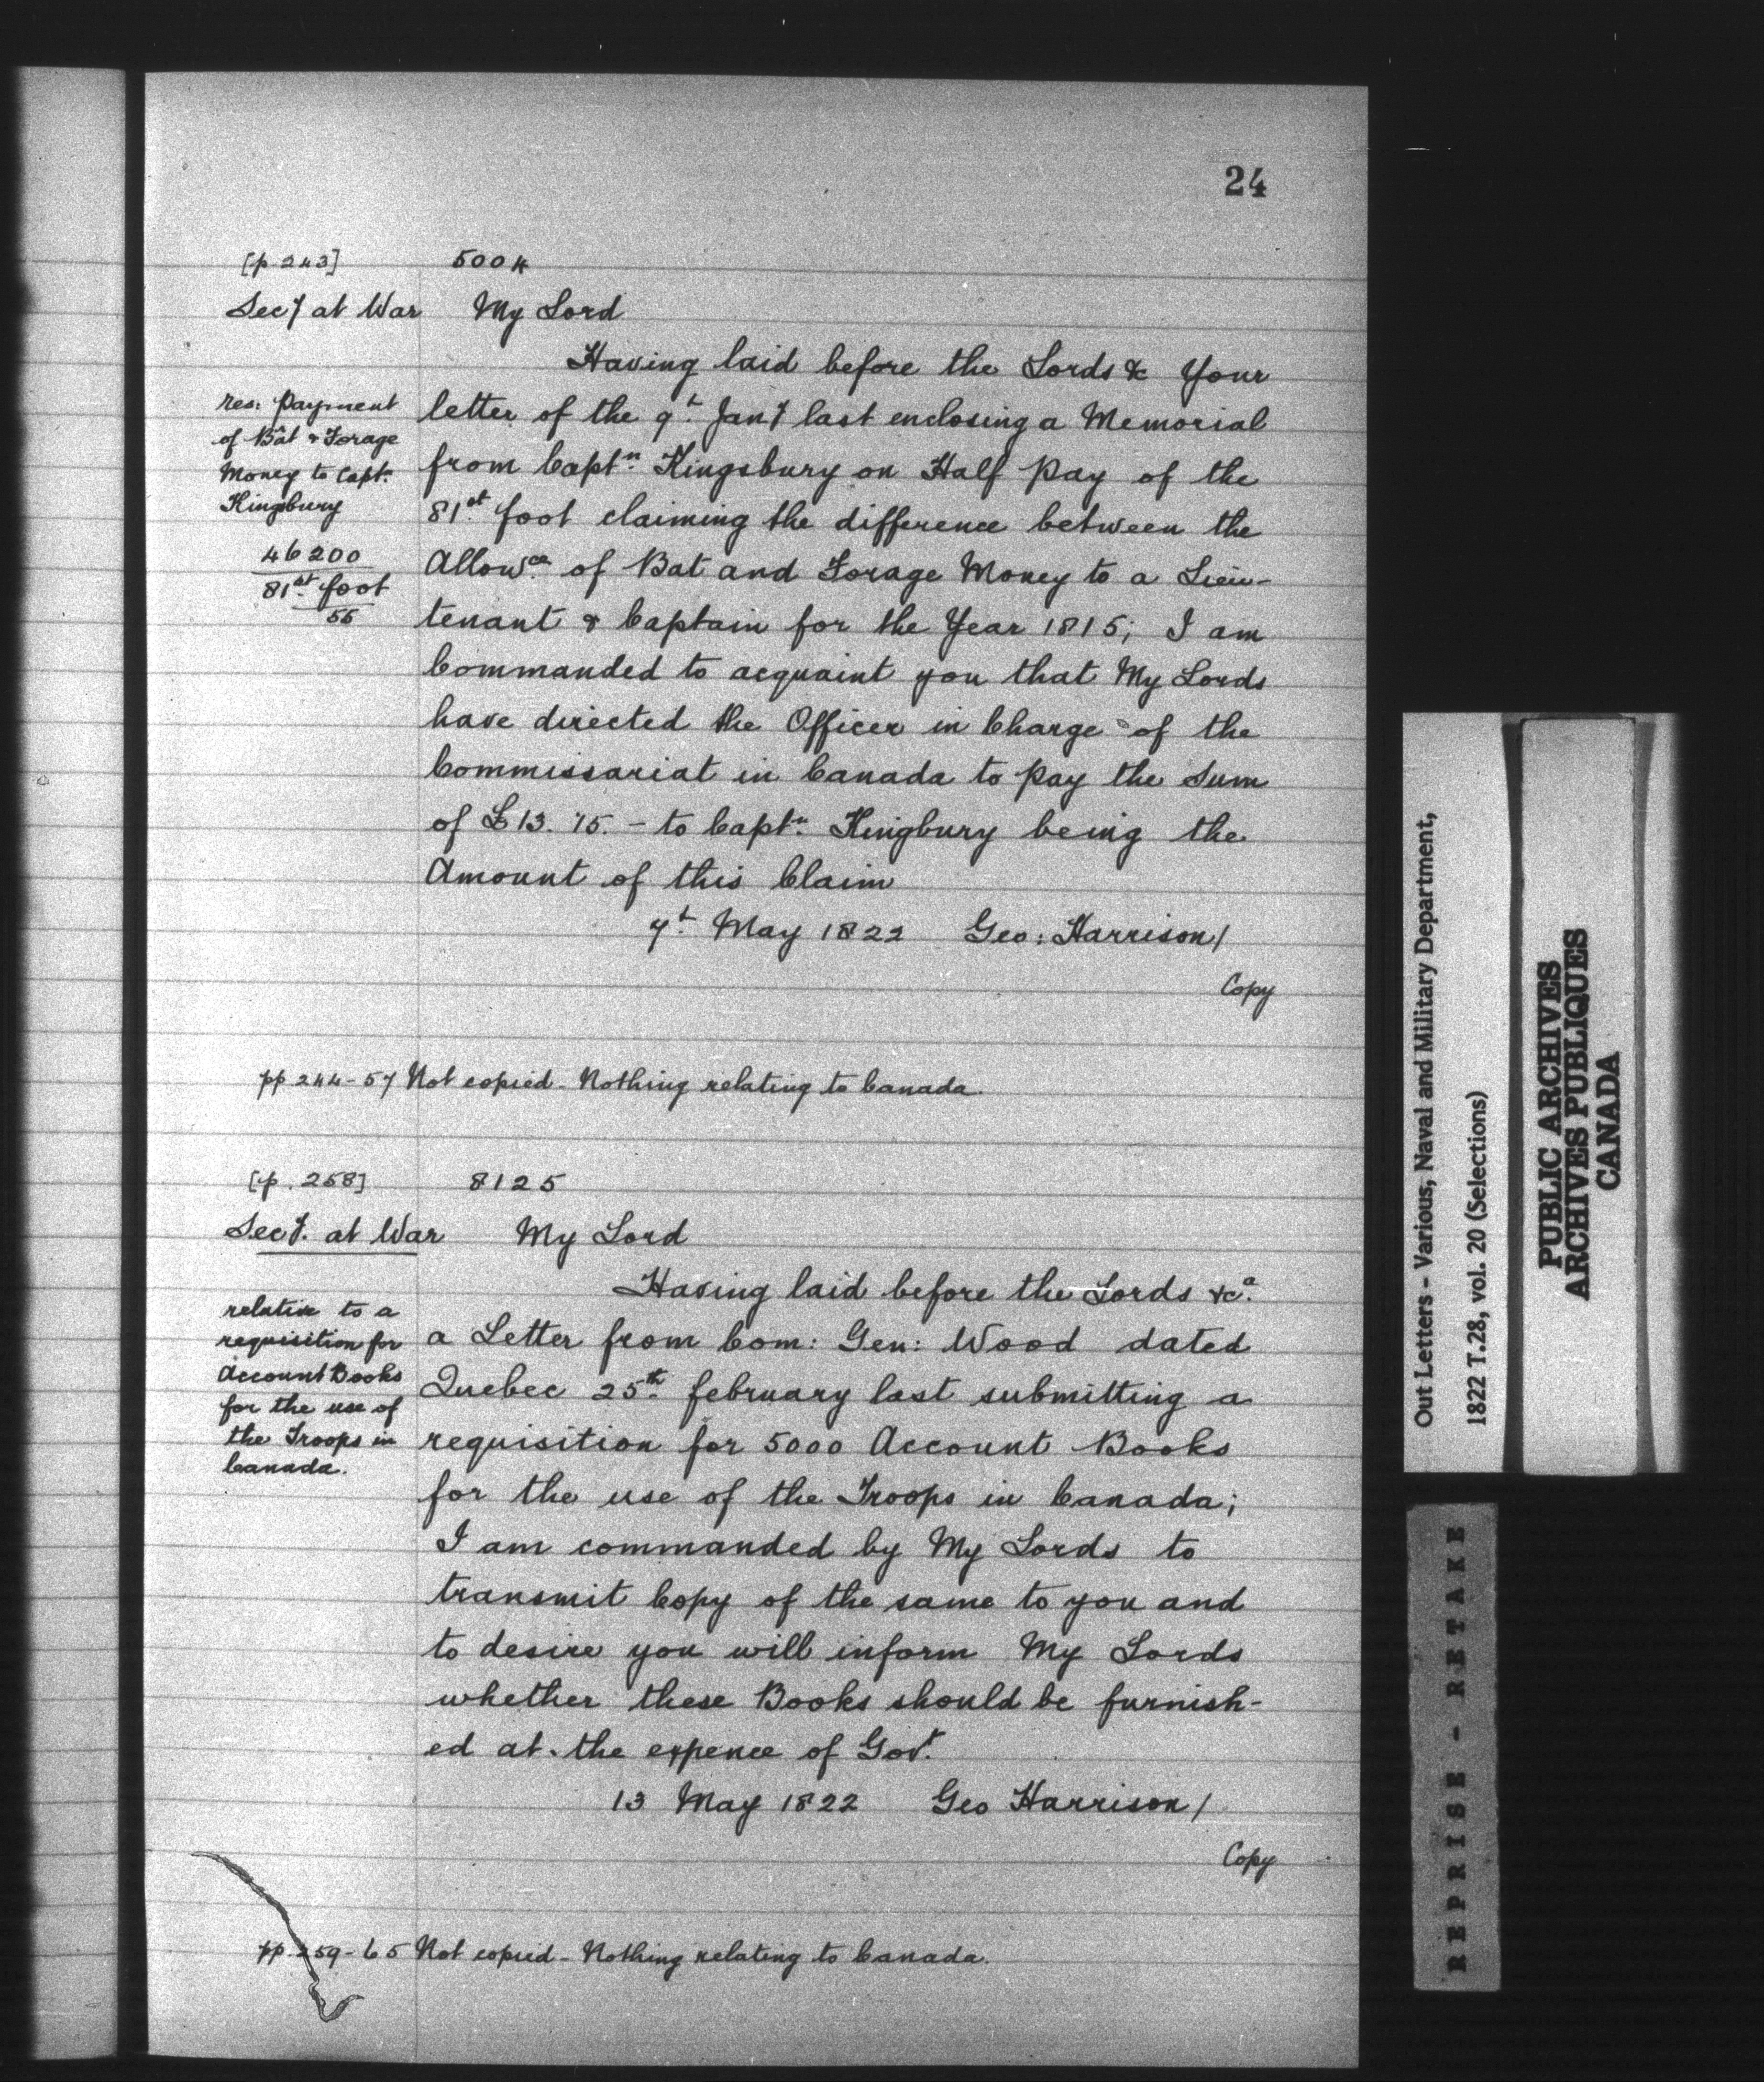 24
[p. 243] 5004
Secy at War My Lord
Having laid before the Lords &c Your
letter of the 9t. Jany last enclosing a Memorial
from Captn. Kingsbury on Half Pay of the
81st. foot claiming the difference between the
Allowce. of Bat and Forage Money to a Lieu-
tenant & Captain for the Year 1815; I am
Commanded to acquaint you that My Lords
have directed the Officer in Charge of the
Commissariat in Canada to pay the Sum
of £13. 15. - to Captn. Kingbury being the
Amount of this Claim
7t. May 1822 Geo: Harrison/
Copy
res: Payment
of Bât & Forage
Money to Capt.
Kingsbury
46200
81st. foot
55
pp 244-57 Not copied - Nothing relating to Canada.
[p. 258] 8125
Secy. at War My Lord
Having laid before the Lords &ca.
a Letter from Com: Gen: Wood dated
Quebec 25th. february last submitting a
requisition for 5000 Account Books
for the use of the Troops in Canada;
I am commanded by My Lords to
transmit Copy of the same to you and
to desire you will inform My Lords
whether these Books should be furnish-
ed at the expence of Govt.
13 May 1822 Geo Harrison/
Copy
relative to a
requisition for
Account Books
for the use of
the Troops in
Canada.
pp. 259-65 Not copied - Nothing relating to Canada.
Out Letters - Various, Naval and Military Department,
1822 T.28, vol. 20 (Selections)
PUBLIC ARCHIVES
ARCHIVES PUBLIQUES
CANADA
REPRISE - RETAKE